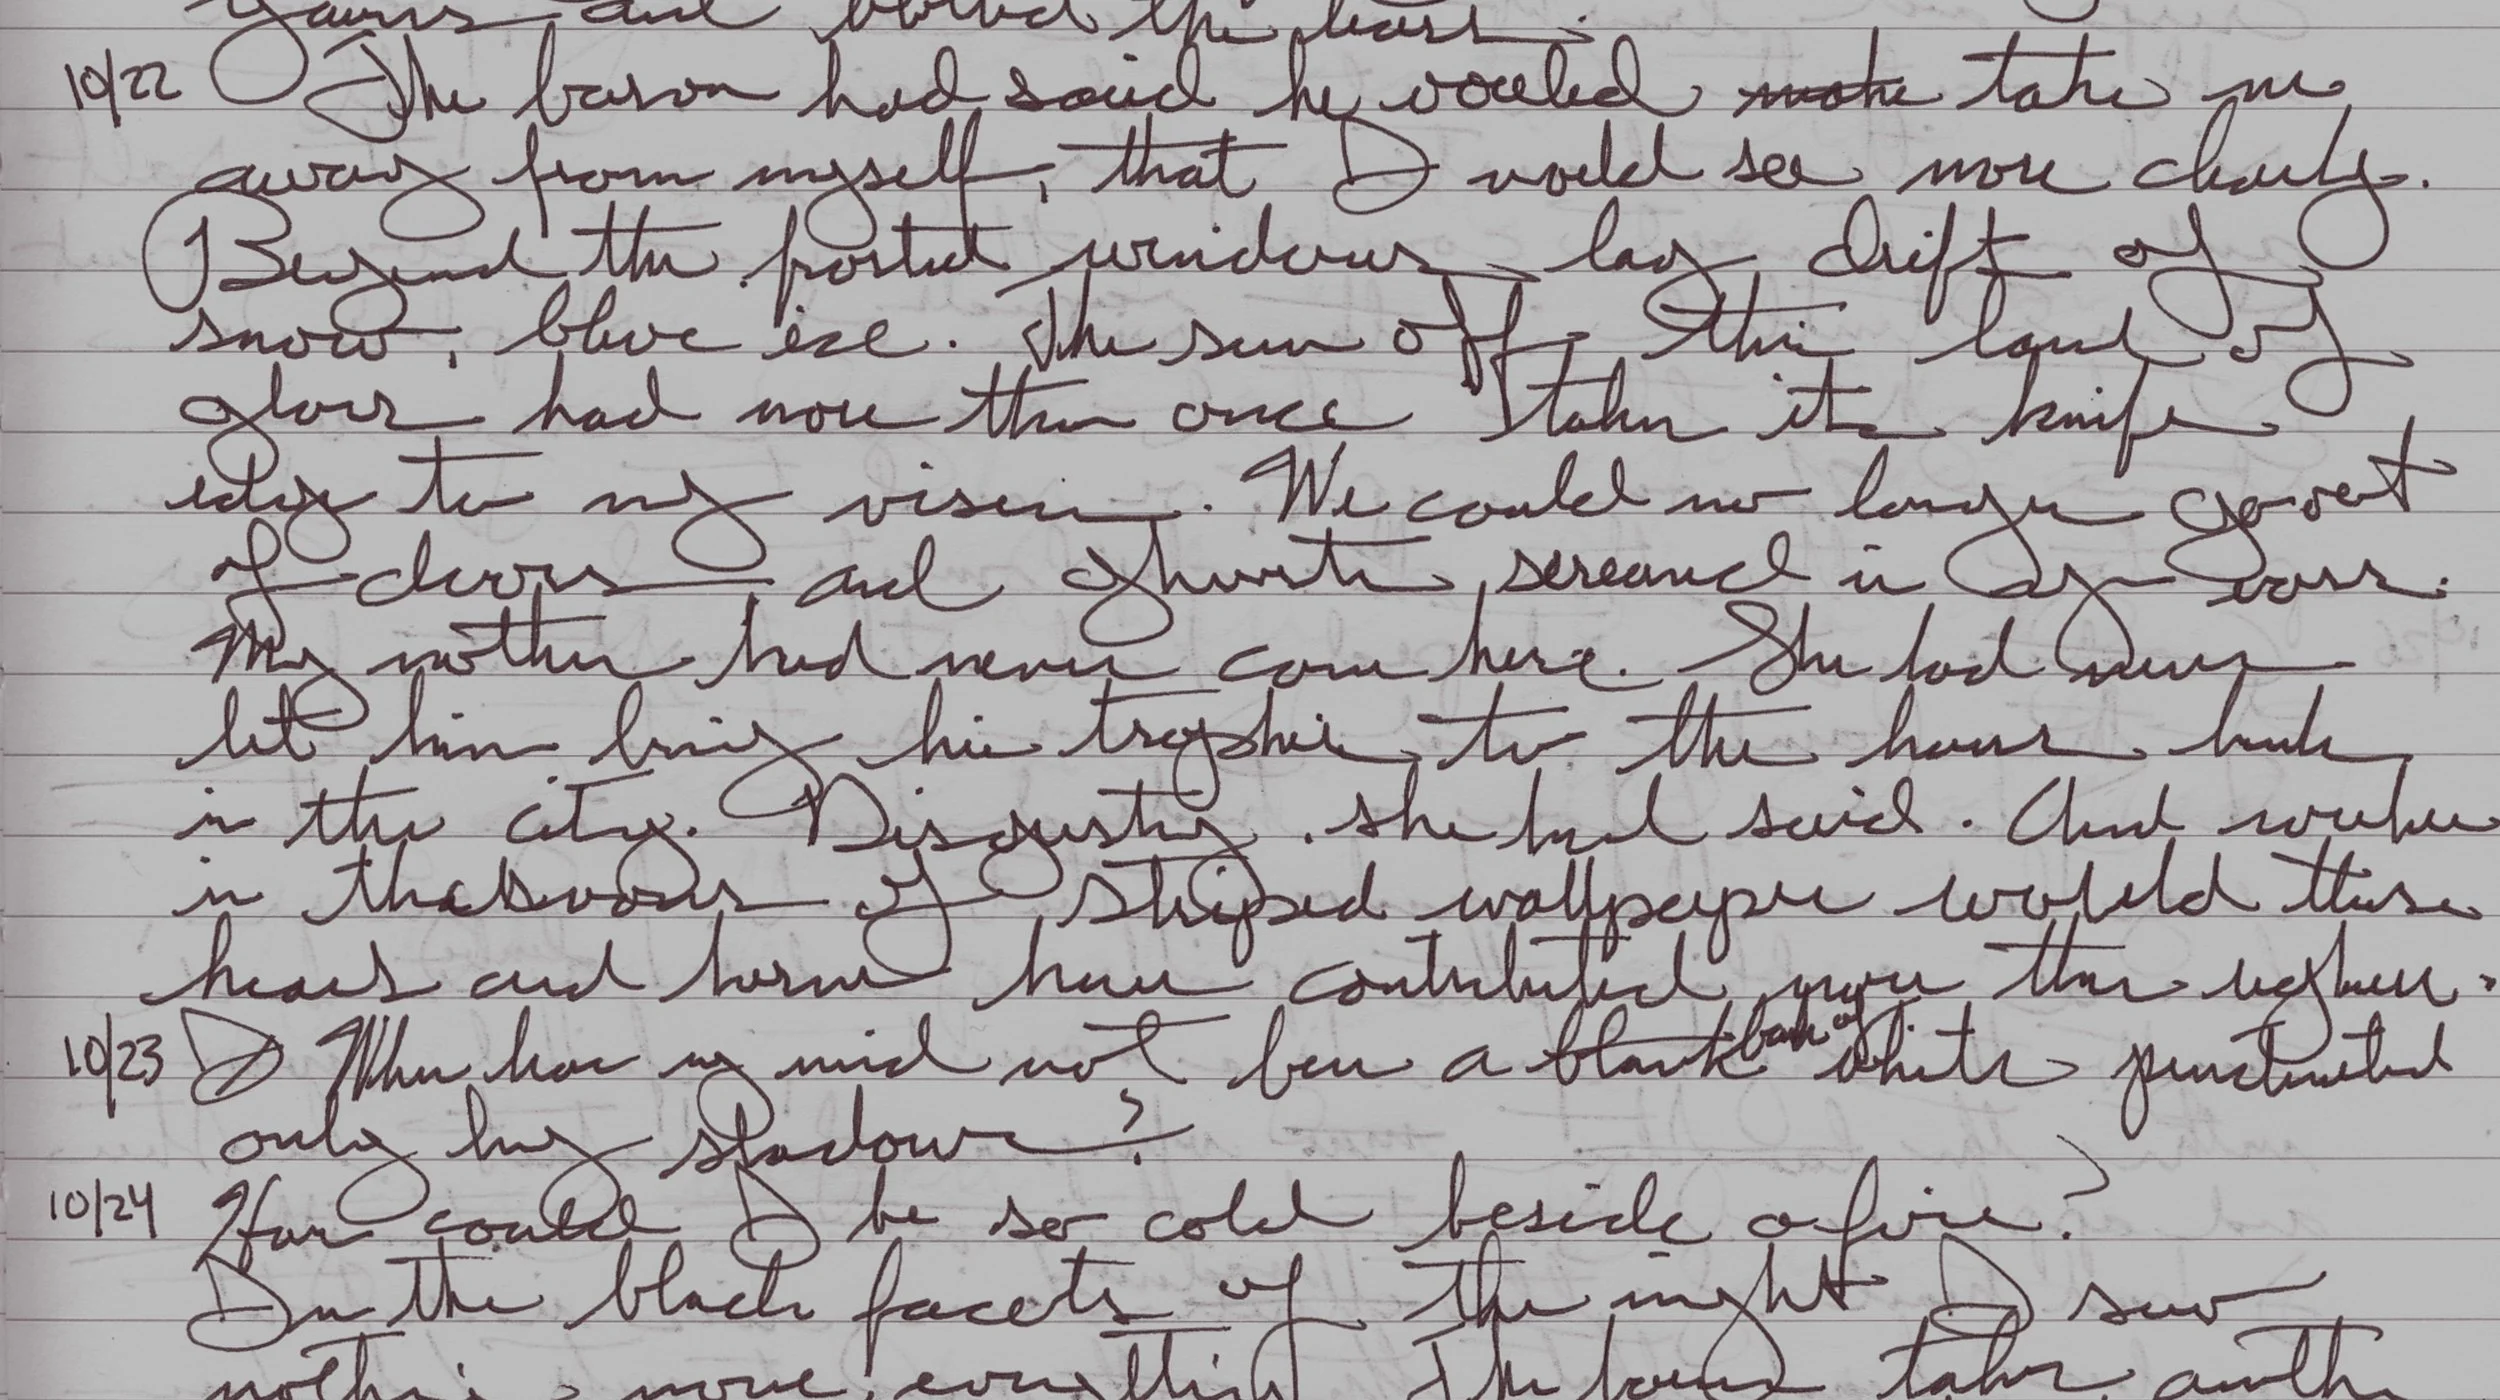 yours and blood the bears.
10/22 The baron had said he would make take me
away from myself, that I would see more clearly.
Beyond the frosted windows lay drift of
snow, blue ice. The sun off this land of
glass had more than once taken its knife
edge to my vision. We could no longer go out
of doors and ghosts screamed in my ears.
My mother had never come here. She had never
let him bring his trophies to the house back
in the city. Disgusting, she had said. And nowhere
in the of striped wallpaper would these
heads and horns have contributed more than ugliness.
10/23 When has my mind not been a blank bank of white punctuated
only by shadows?
10/24 How could I be so cold beside a fire?
In the black facets of the night I saw
nothing, more, everything. The takes another